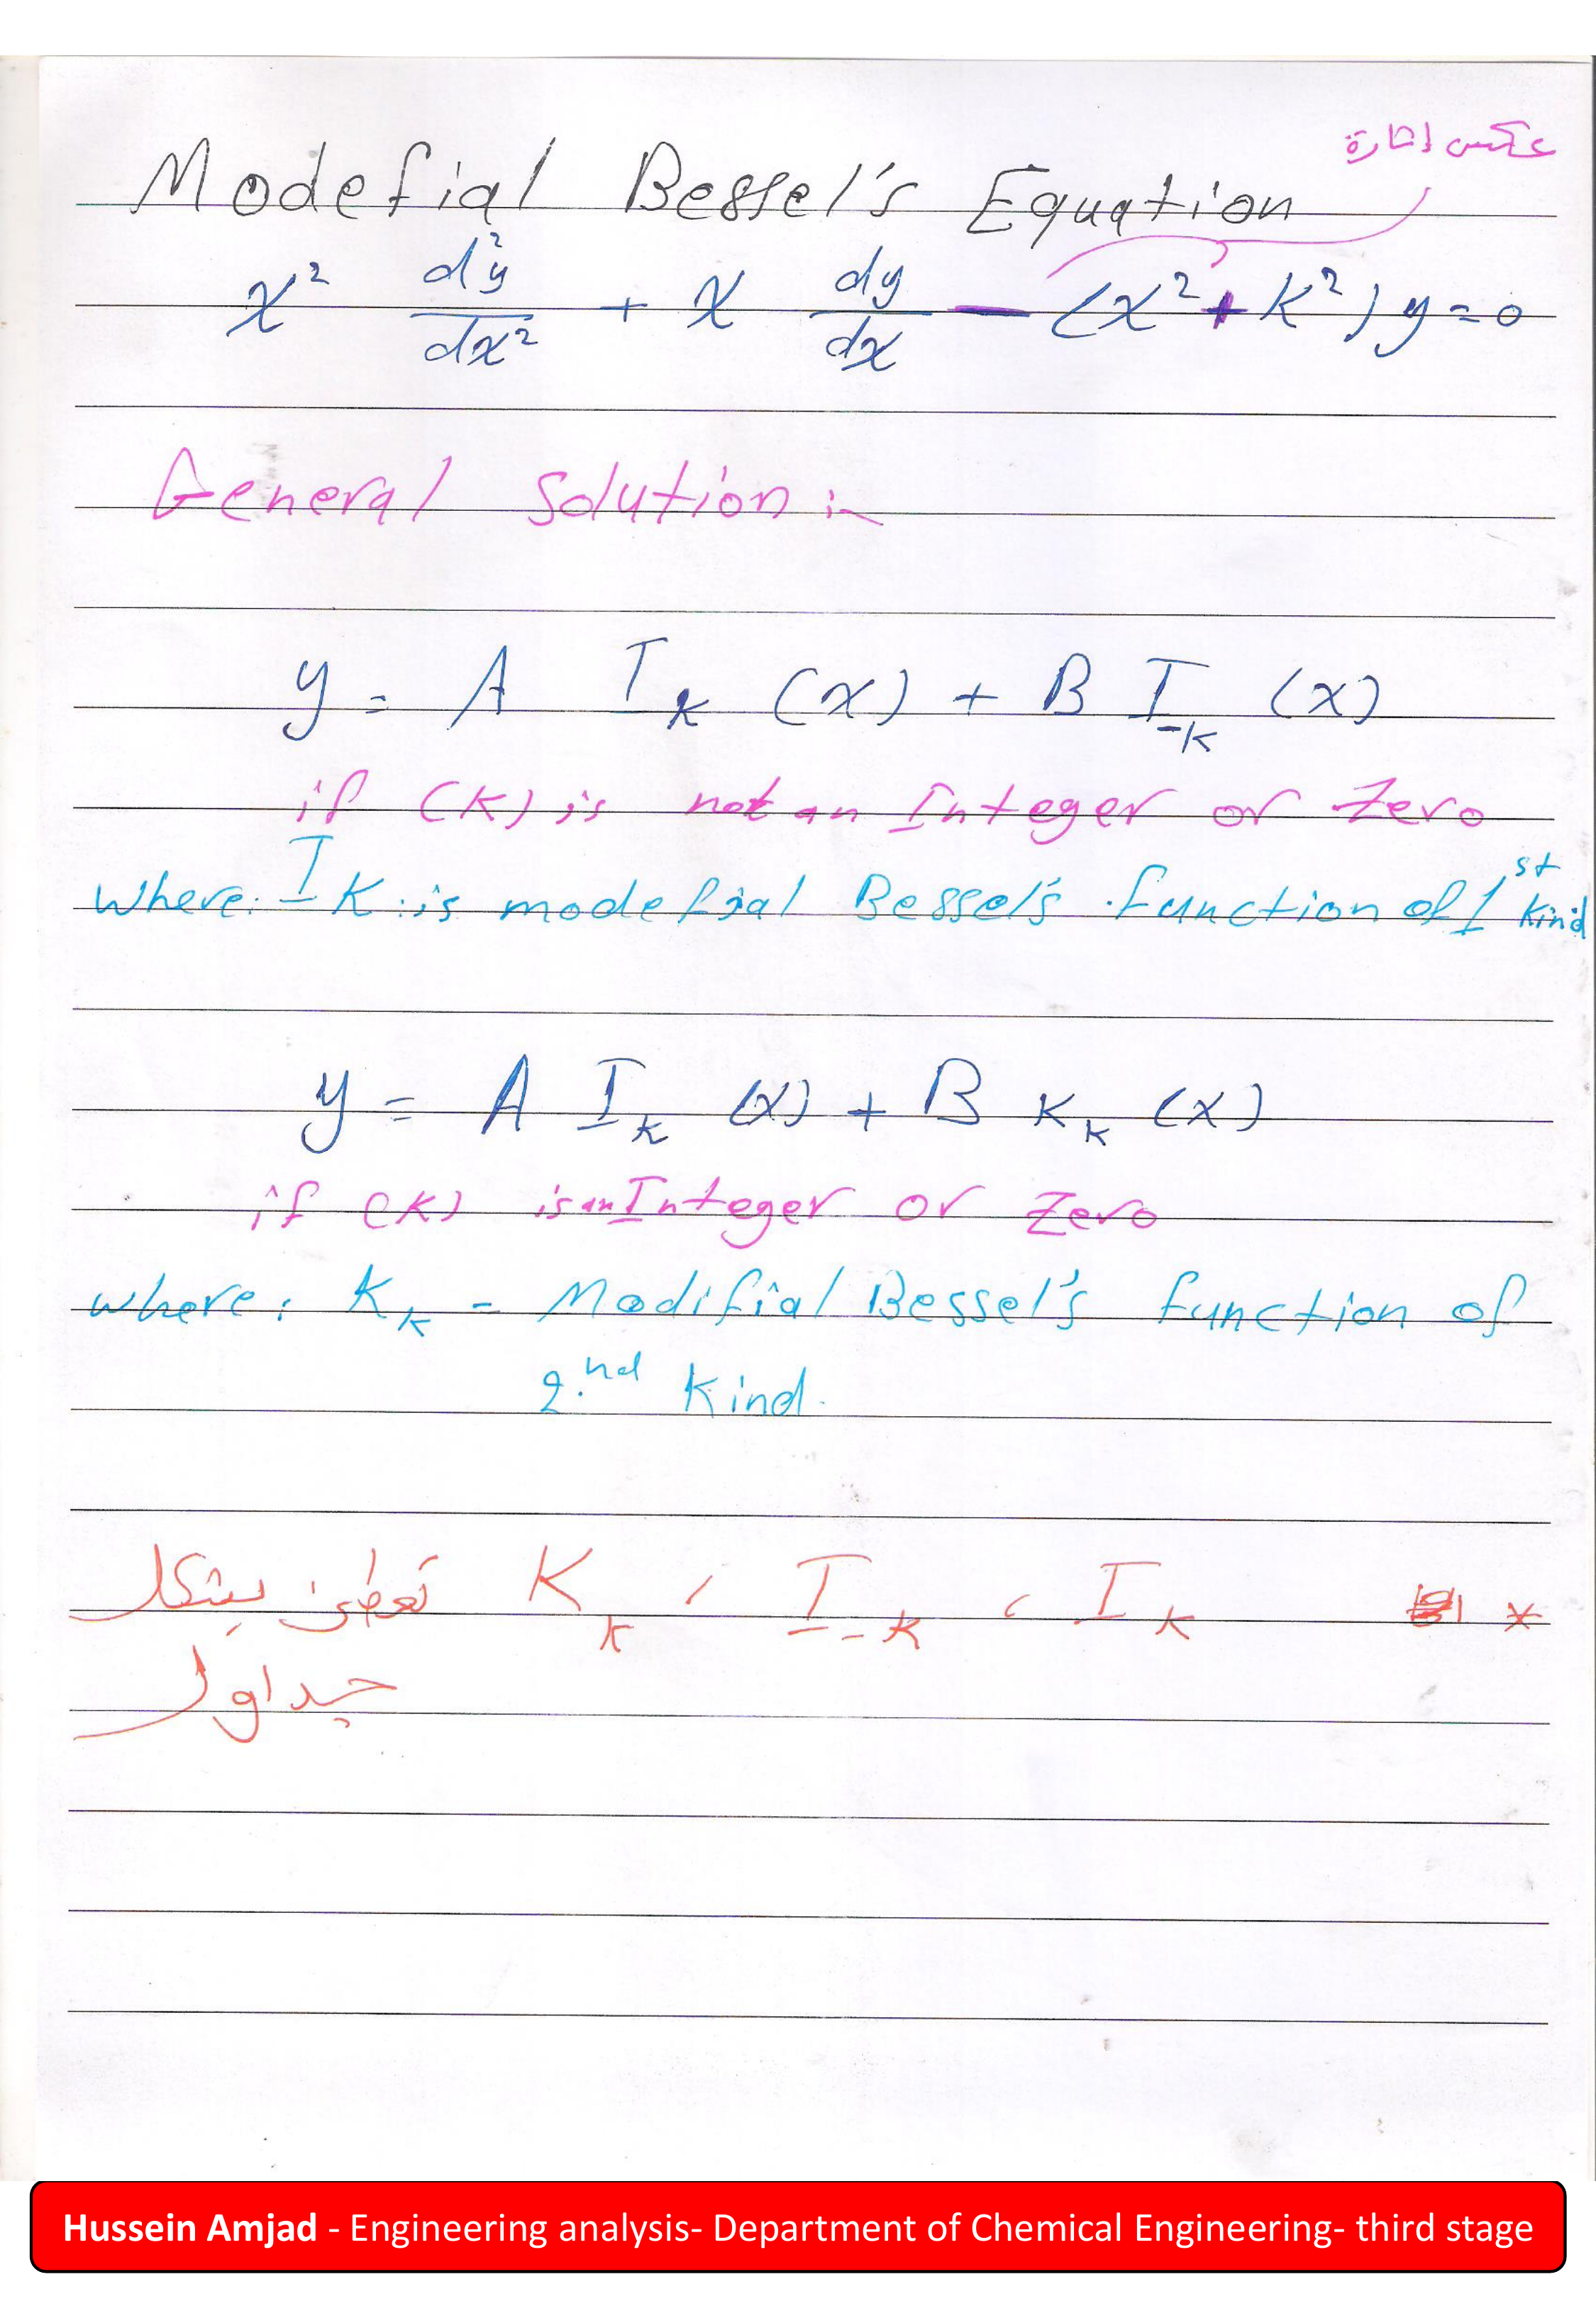 عكس إشارة
Modefial Bessel's Equation
x² d²y/dx² + x dy/dx − (x² + k²) y = 0
General Solution :-
y = A I_k (x) + B I_-k (x)
if (k) is not an Integer or Zero
where: I_k : is modefial Bessel's function of 1st kind
y = A I_k (x) + B K_k (x)
if (k) is an Integer or Zero
where: K_k = Modifial Bessel's function of
2.nd Kind.
* I_k ، I_-k ، K_k تعطى بشكل
جداول
Hussein Amjad - Engineering analysis- Department of Chemical Engineering- third stage